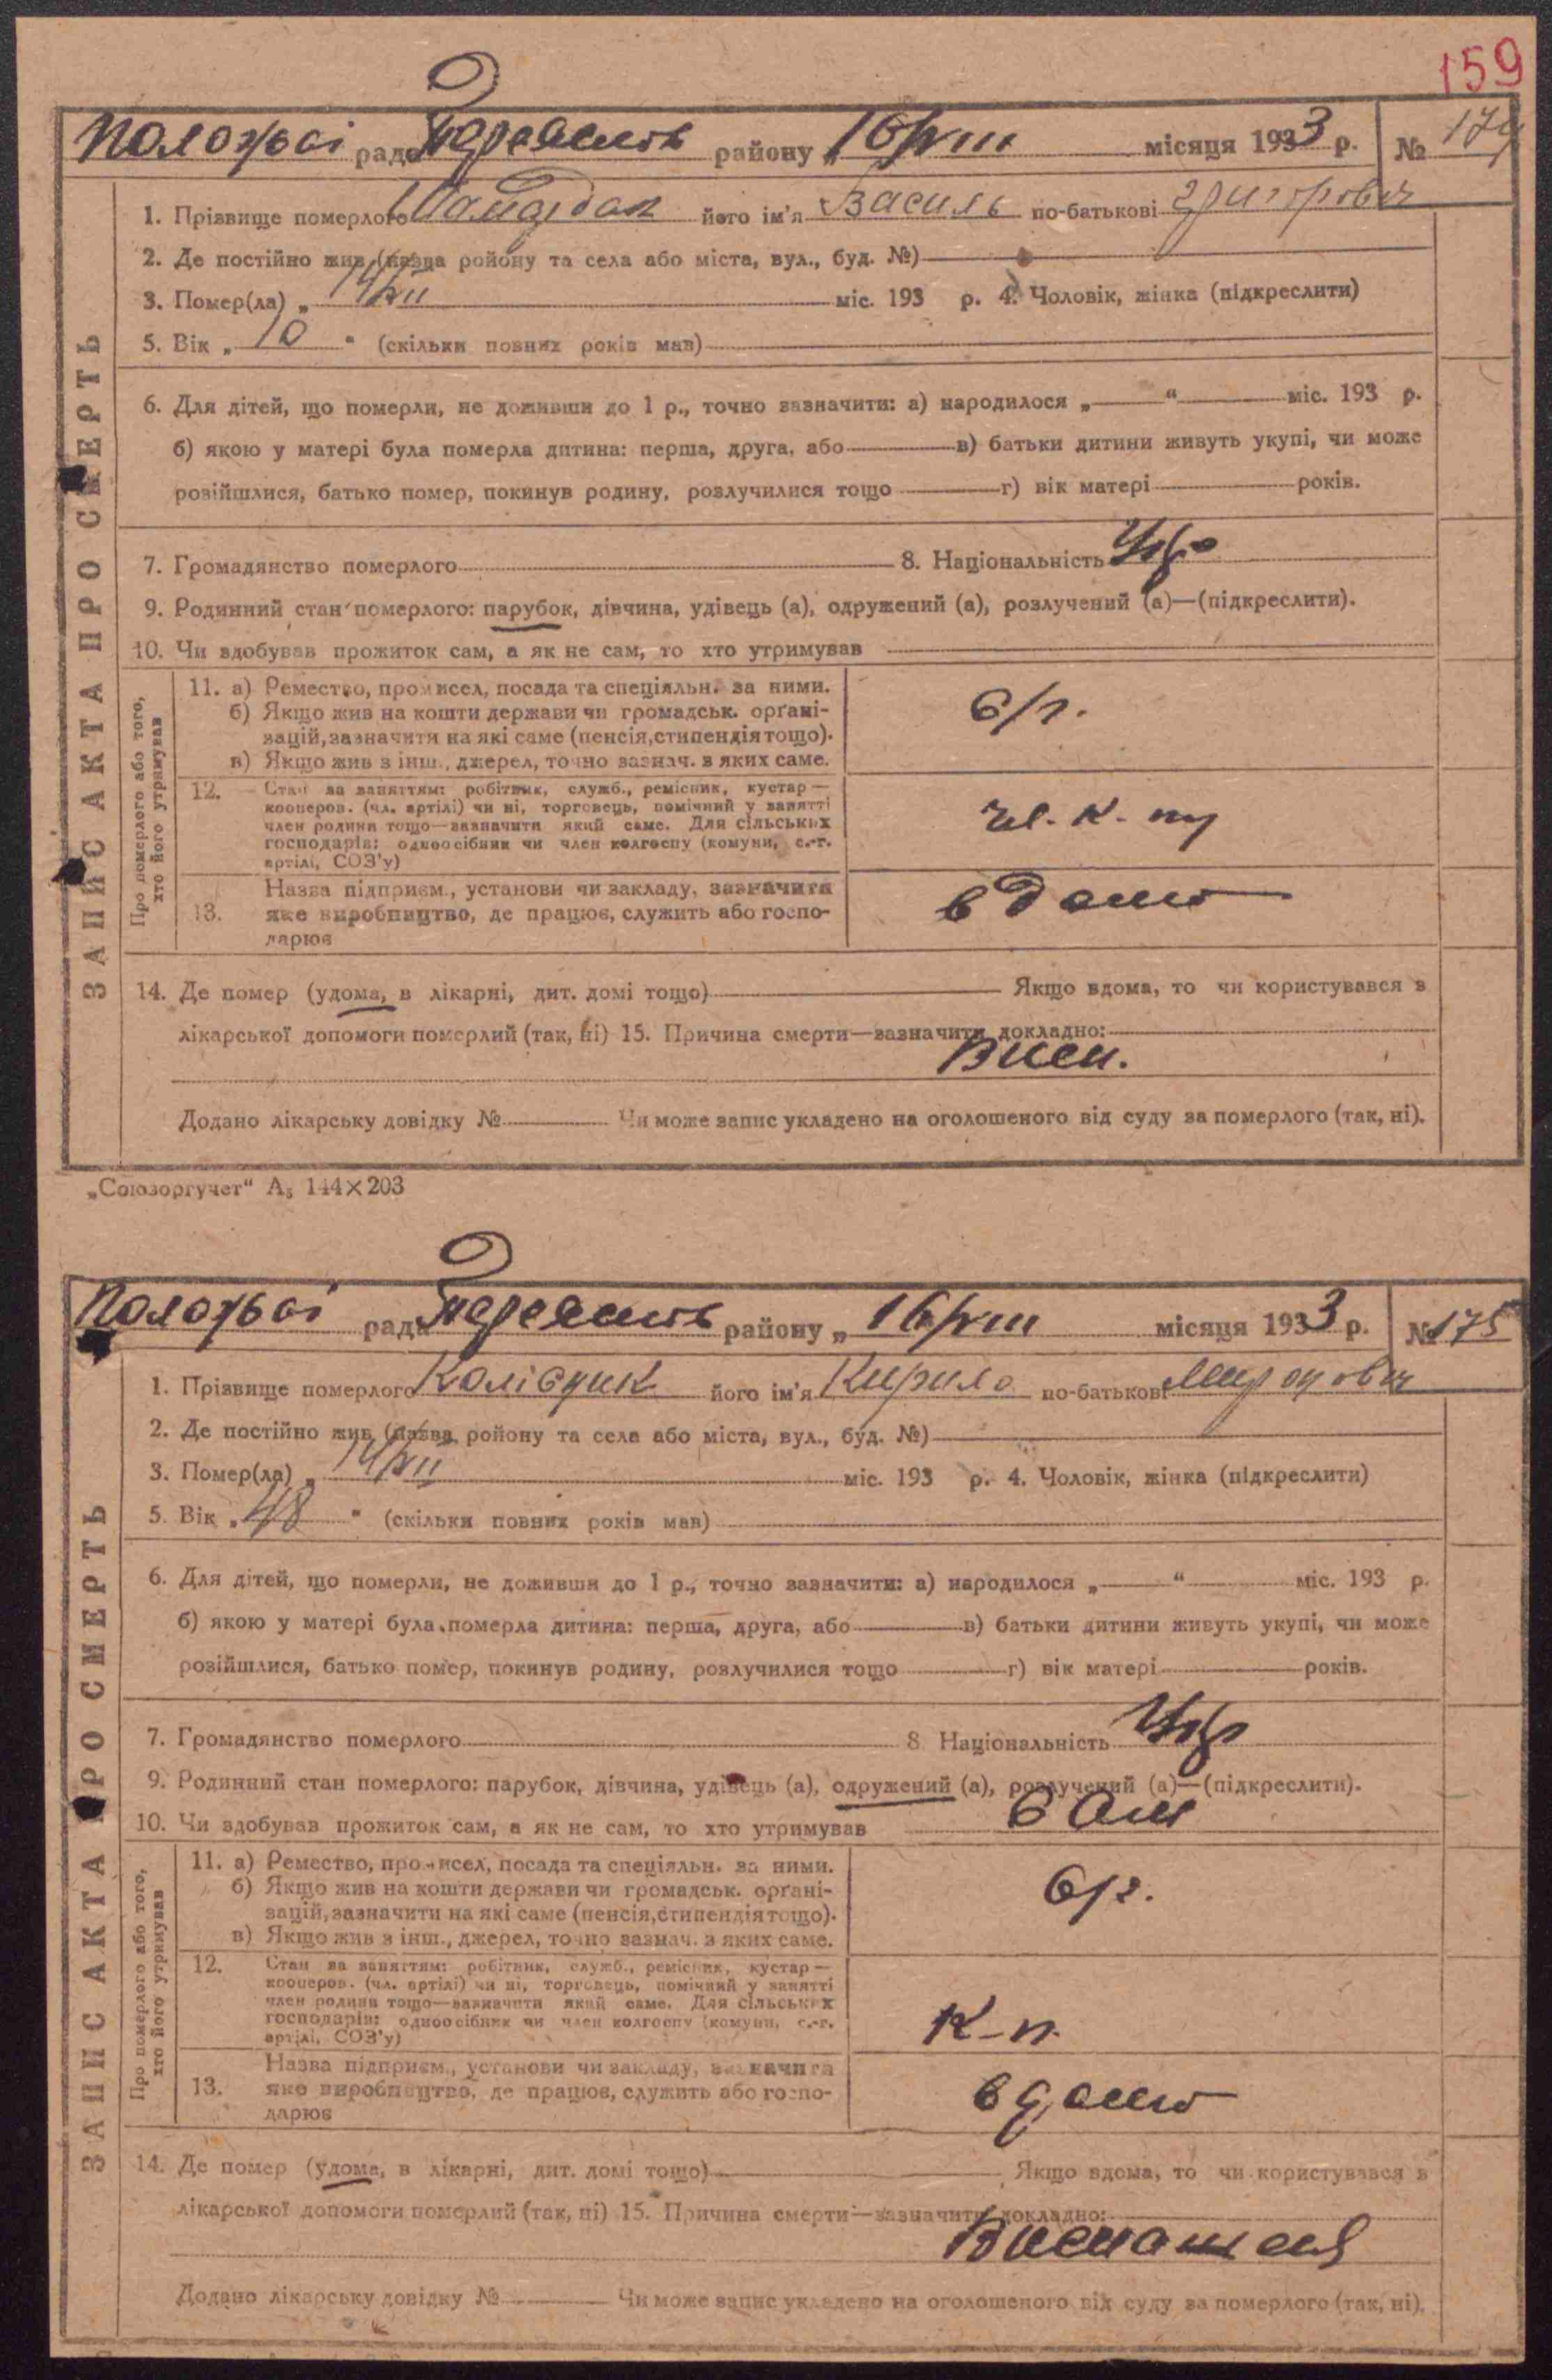 159
рада района 16/VIII місяця 1933 р. № 174
1. Прізвище померлого його ім'я Василь по-батькові Григорович
2. Де постійно жив (назва ройону та села або міста, вул., буд. №)
3. Помер(ла) „ 14/VII міс. 193 р. 4. Чоловік, жінка (підкреслити)
5. Вік „ 10 " (скільки повних років мав)
6. Для дітей, що померли, не доживши до 1 р., точно зазначити: а) народилося „ “ міс. 193 р.
б) якою у матері була померла дитина: перша, друга, або в) батьки дитини живуть укупі, чи може
розійшлися, батько помер, покинув родину, розлучилися тощо г) вік матері років.
7. Громадянство померлого 8. Національність Укр
9. Родинний стан померлого: парубок, дівчина, удівець (а), одружений (а), розлучений (а)—(підкреслити).
10. Чи здобував прожиток сам, а як не сам, то хто утримував
Про померлого або того, хто його утримував
11. а) Ремество, промисел, посада та спеціяльн. за ними.
б) Якщо жив на кошти держави чи громадськ. орґані-
зацій, зазначити на які саме (пенсія, стипендія тощо).
в) Якщо жив з інш., джерел, точно зазнач. з яких саме.
б/г.
12. Стан за заняттям: робітник, служб., ремісник, кустар—
кооперов. (чл. артілі) чи ні, торговець, помічний у занятті
член родини тощо—зазначити який саме. Для сільських
господарів: одноосібник чи член колгоспу (комуни, с.-г.
артілі, СОЗ'у)
чл. к.
Назва підприєм., установи чи закладу, зазначити
13. яке виробництво, де працює, служить або госпо-
дарює
в дома
14. Де помер (удома, в лікарні, дит. домі тощо) Якщо вдома, то чи користувався з
лікарської допомоги померлий (так, ні) 15. Причина смерти—зазначити докладно:
Висн.
Додано лікарську довідку № Чи може запис укладено на оголошеного від суду за померлого (так, ні).
ЗАПИС АКТА ПРО СМЕРТЬ
„Союзоргучет“ А₅ 144×203
рада району „ 16/VIII місяця 1933 р. № 175
1. Прізвище померлого Колісник його ім'я Кирило по-батькові Миронович
2. Де постійно жив (назва ройону та села або міста, вул., буд. №)
3. Помер(ла) „ 14/VII міс. 193 р. 4. Чоловік, жінка (підкреслити)
5. Вік „ 48 " (скільки повних років мав)
6. Для дітей, що померли, не доживши до 1 р., точно зазначити: а) народилося „ “ міс. 193 р.
б) якою у матері була померла дитина: перша, друга, або в) батьки дитини живуть укупі, чи може
розійшлися, батько помер, покинув родину, розлучилися тощо г) вік матері років.
7. Громадянство померлого 8. Національність Укр
9. Родинний стан померлого: парубок, дівчина, удівець (а), одружений (а), розлучений (а)—(підкреслити).
10. Чи здобував прожиток сам, а як не сам, то хто утримував
Про померлого або того, хто його утримував
11. а) Ремество, промисел, посада та спеціяльн. за ними.
б) Якщо жив на кошти держави чи громадськ. орґані-
зацій, зазначити на які саме (пенсія, стипендія тощо).
в) Якщо жив з інш., джерел, точно зазнач. з яких саме.
б/г.
12. Стан за заняттям: робітник, служб., ремісник, кустар—
кооперов. (чл. артілі) чи ні, торговець, помічний у занятті
член родини тощо—зазначити який саме. Для сільських
господарів: одноосібник чи член колгоспу (комуни, с.-г.
артілі, СОЗ'у)
к-п.
Назва підприєм., установи чи закладу, зазначити
13. яке виробництво, де працює, служить або госпо-
дарює
в дома
14. Де помер (удома, в лікарні, дит. домі тощо) Якщо вдома, то чи користувався з
лікарської допомоги померлий (так, ні) 15. Причина смерти—зазначити докладно:
Додано лікарську довідку № Чи може запис укладено на оголошеного від суду за померлого (так, ні).
ЗАПИС АКТА ПРО СМЕРТЬ